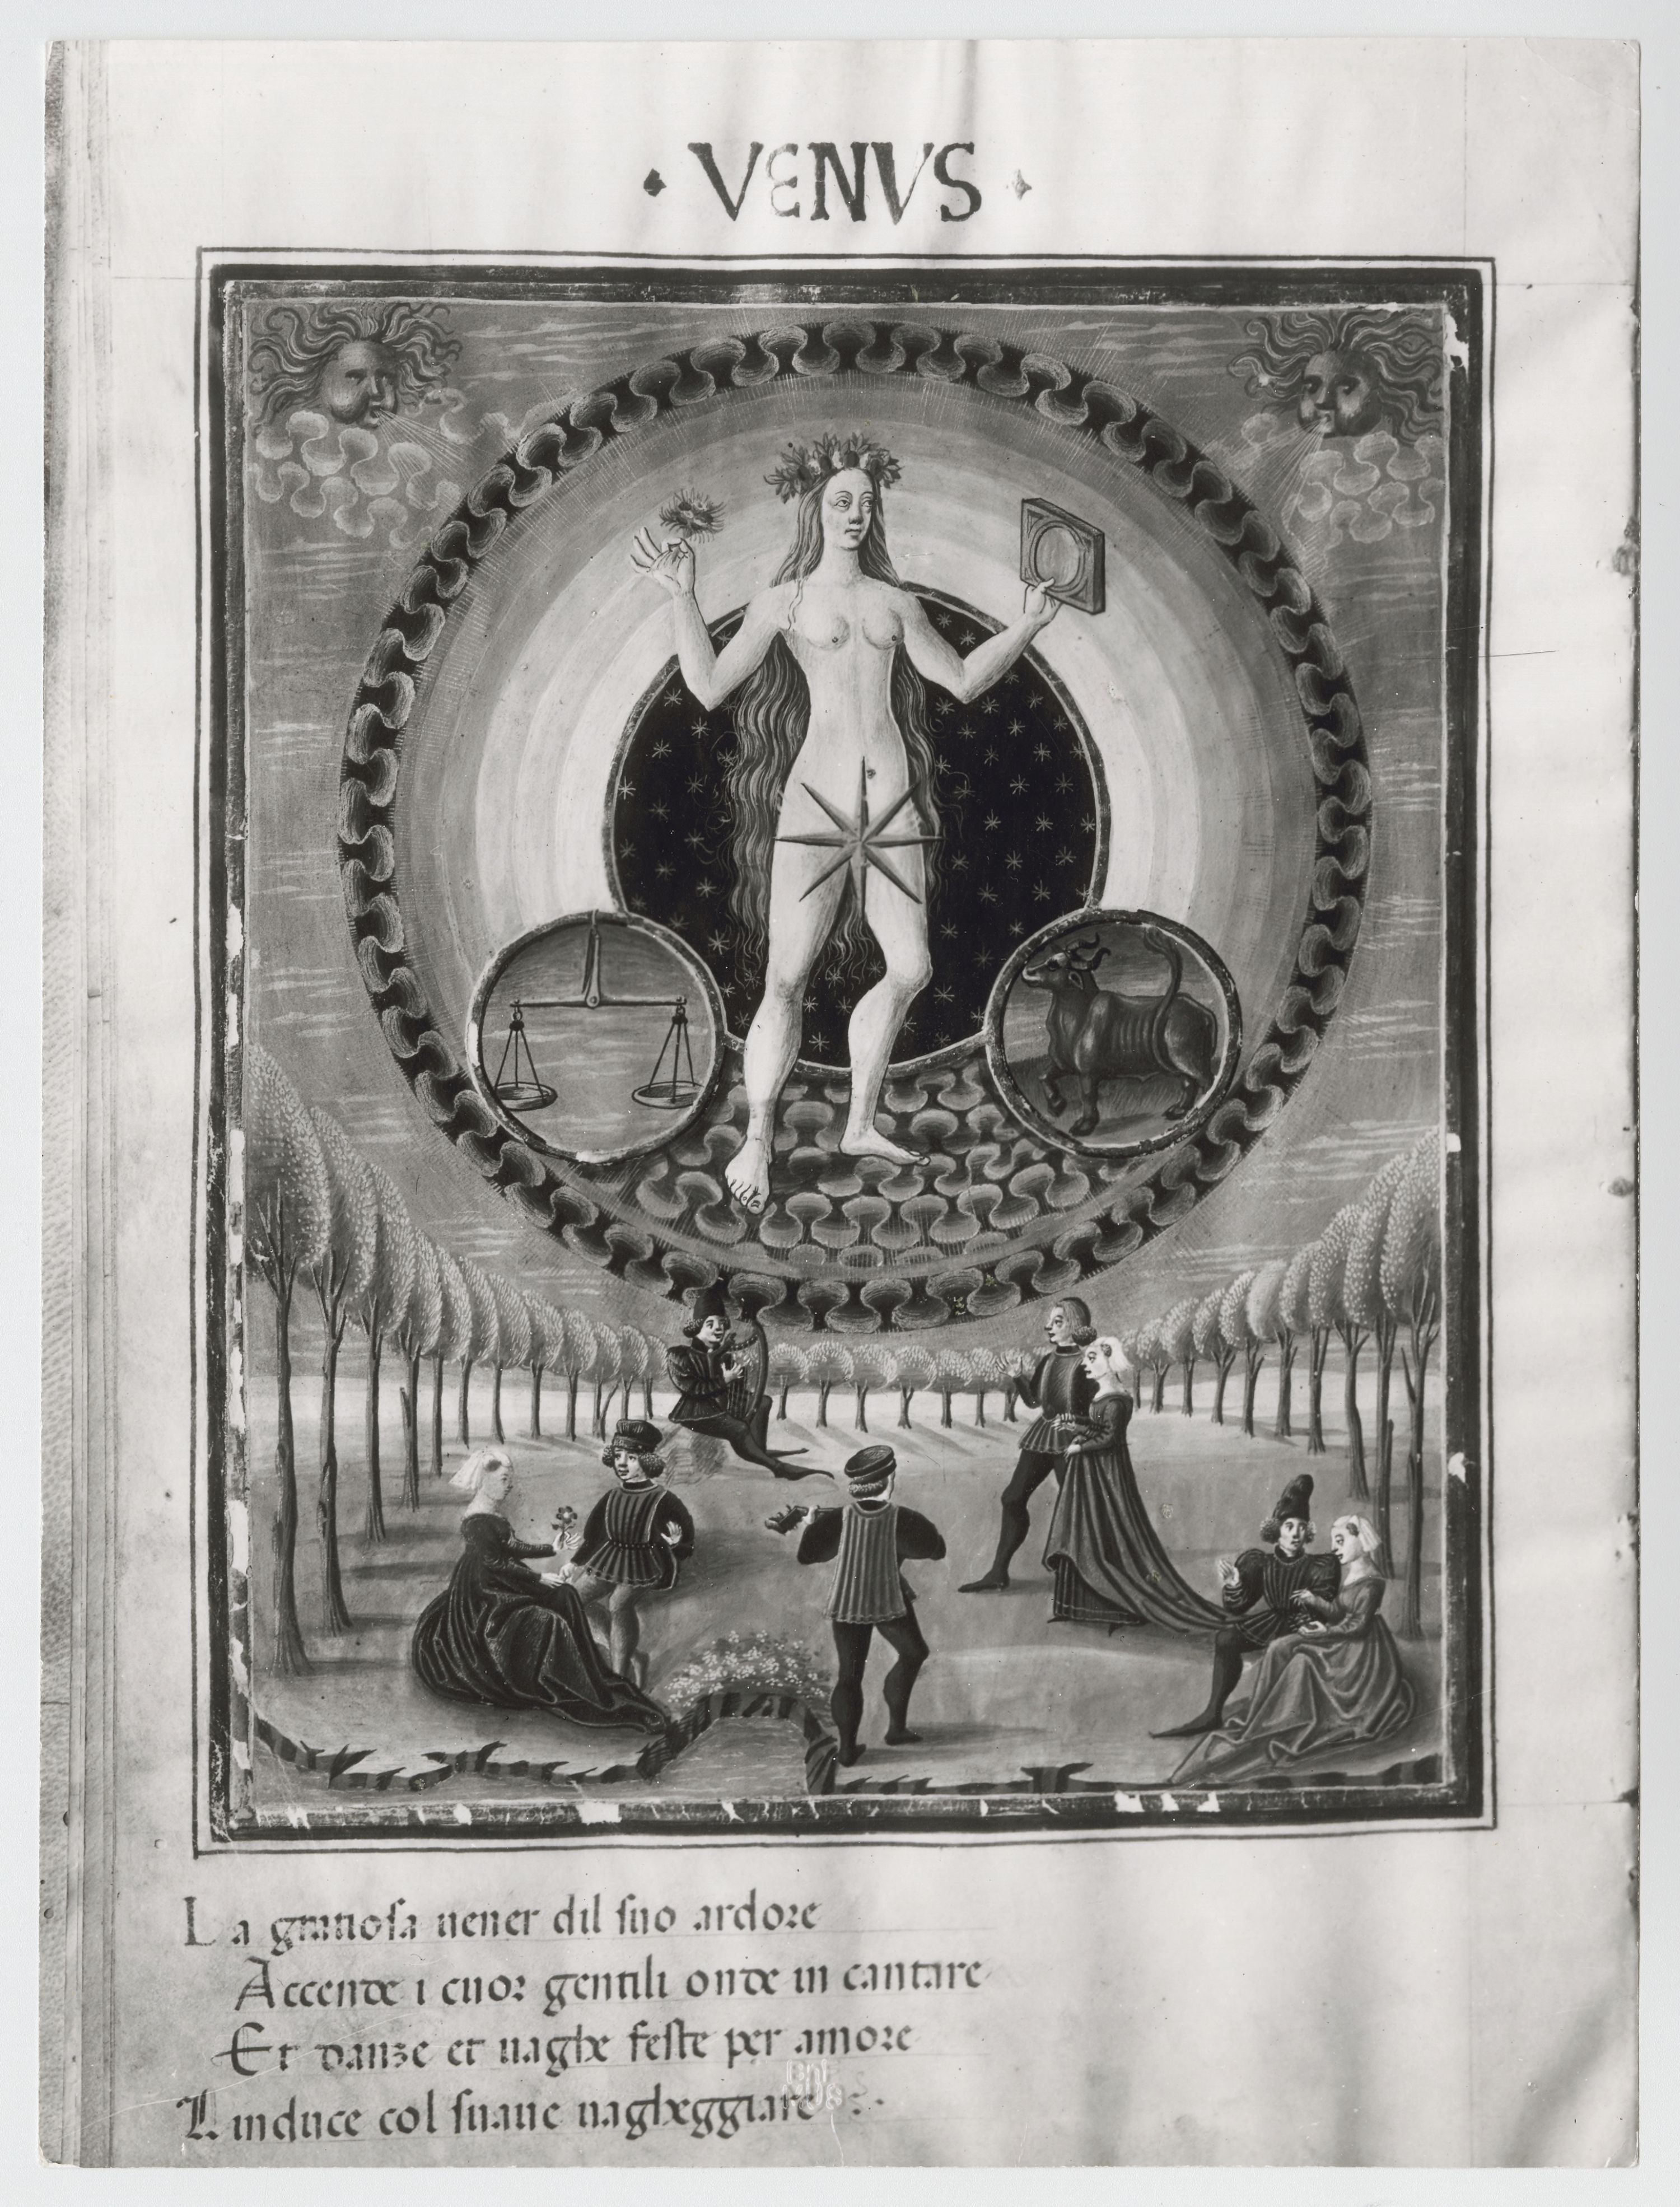 · VENVS ·
La gratiosa uener dil suo ardore
Accende i cuor gentili onde in cantare
Et danze et uaghe feste per amore
Linduce col suaue uagheggiare :·